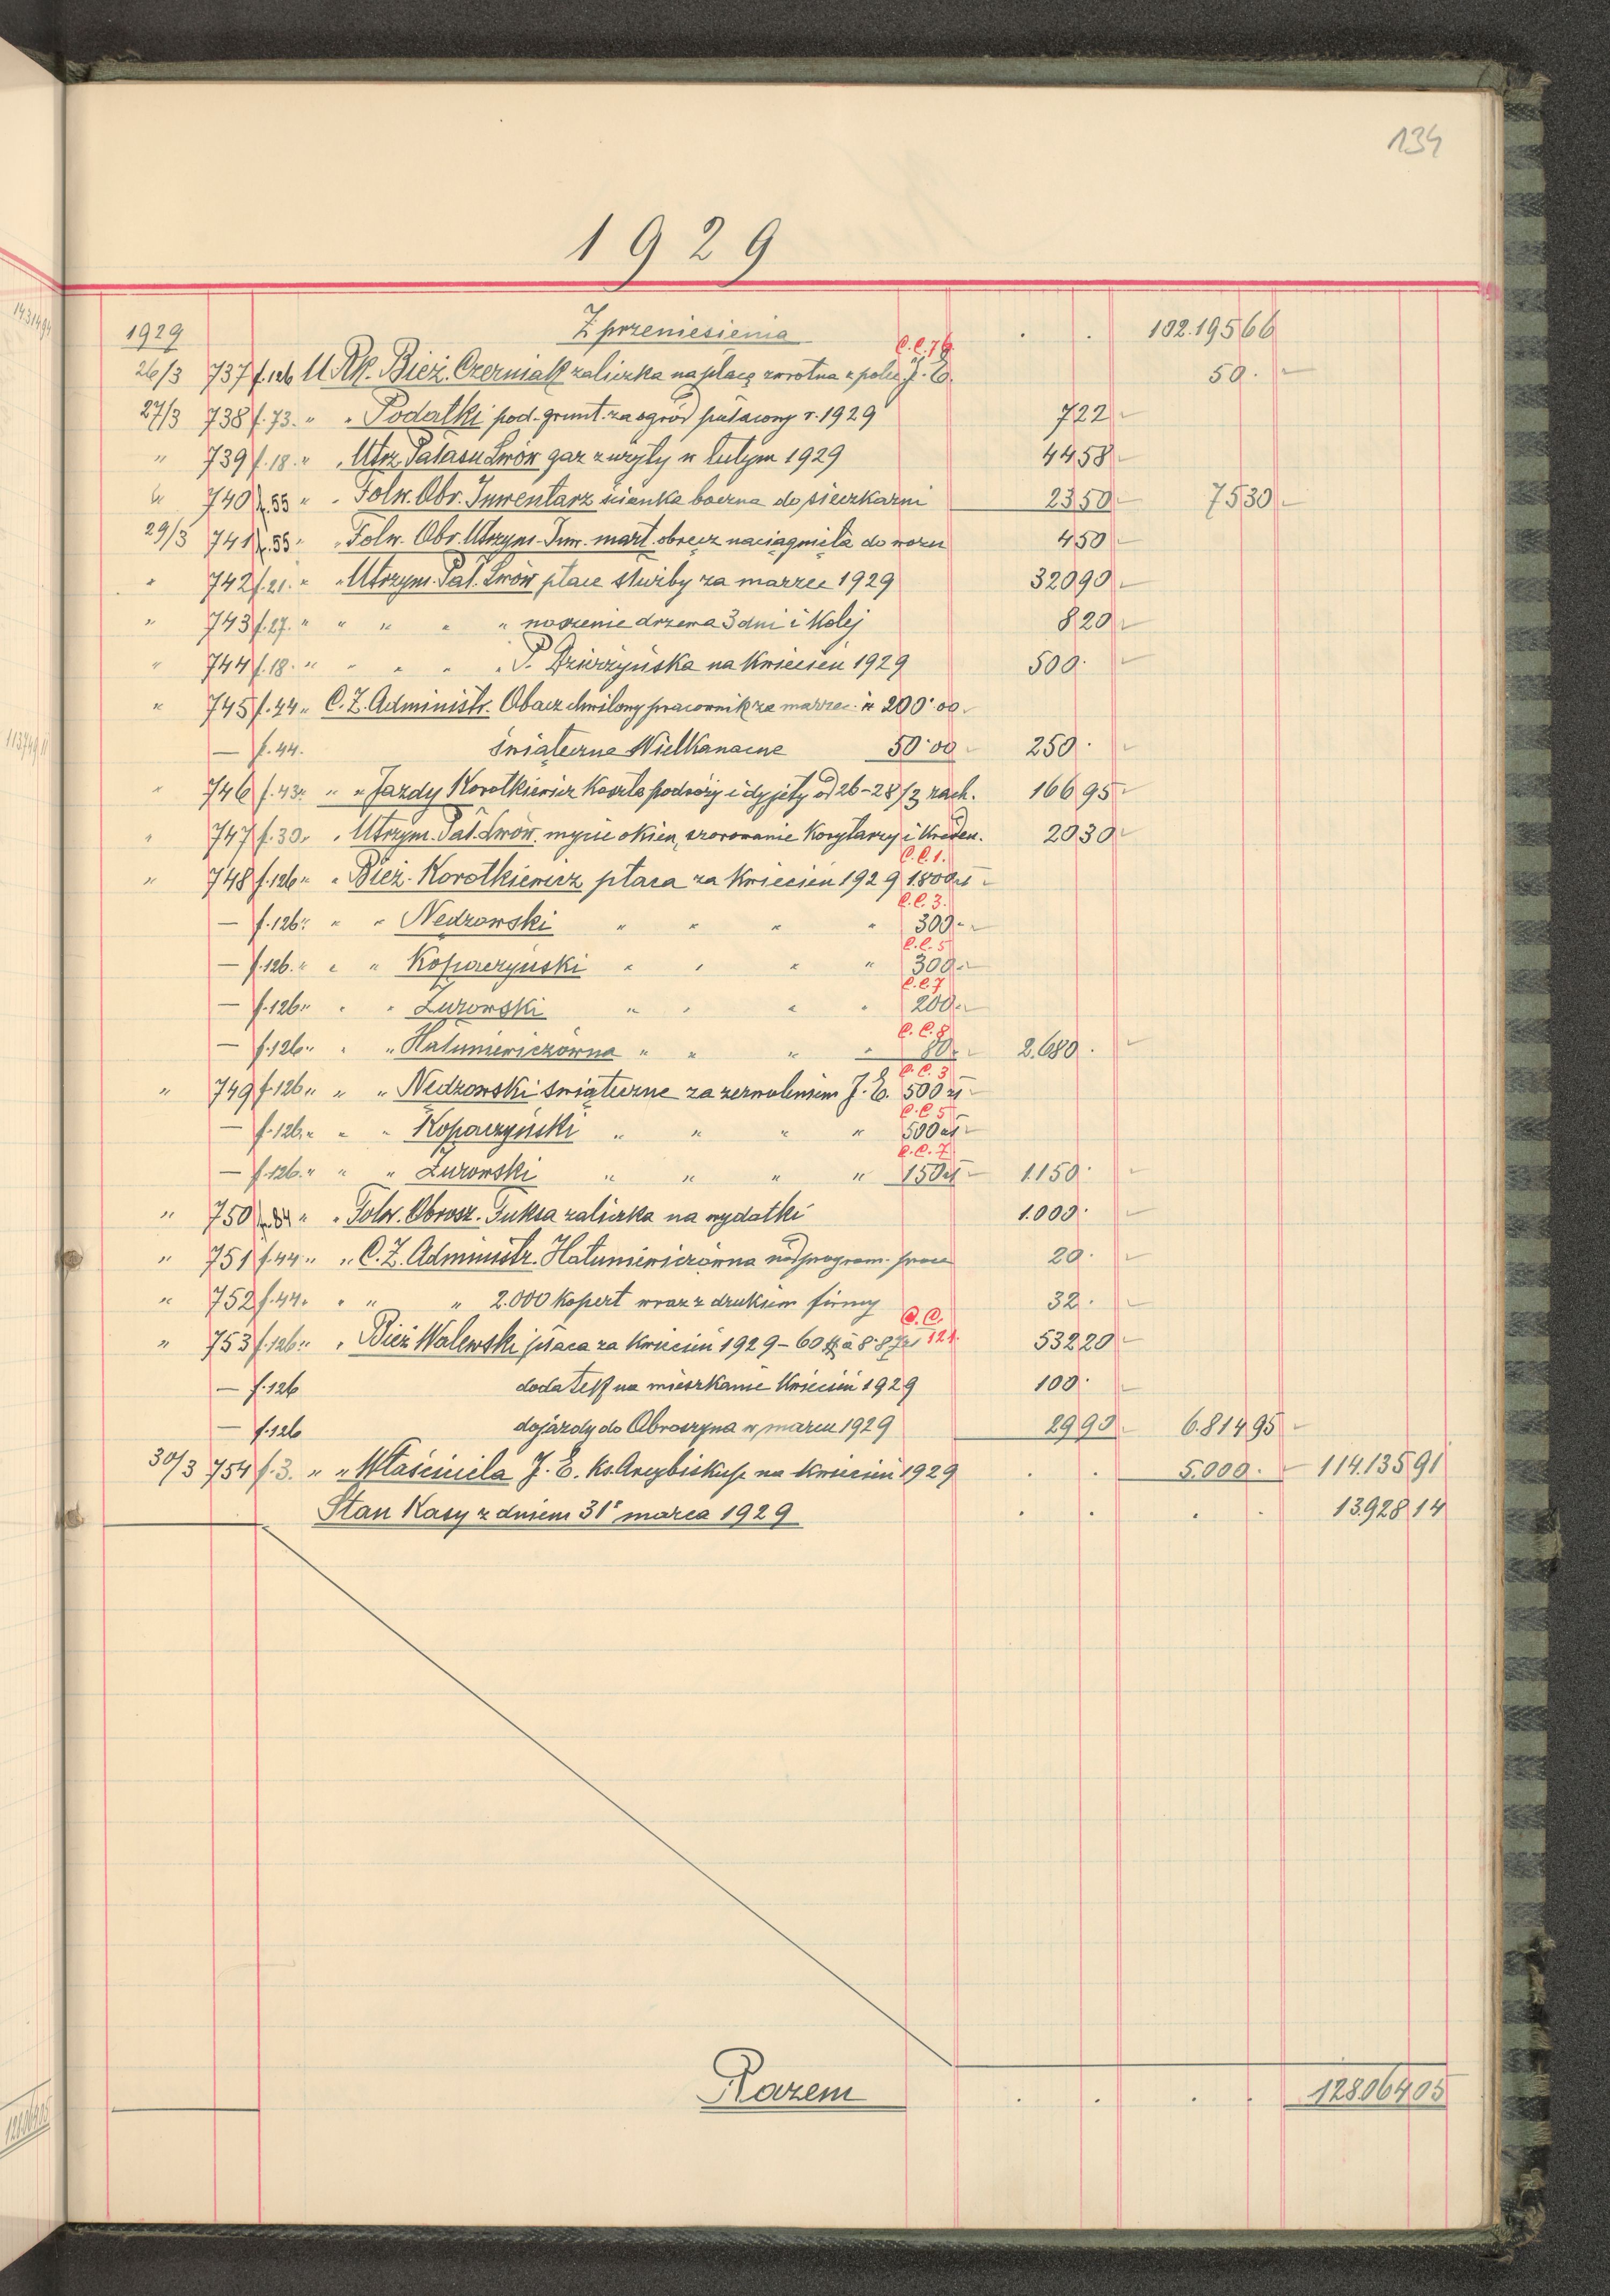 134
1929
1929 Z przeniesienia . . 102.195 66
C.C. 76
26/3 737 f.126 U Rk. Bież. Czerniak zaliczka na płacę zwrotna z polec J. E. 50. -
27/3 738 f. 73. " " Podatki pod. grunt. za ogród pałacowy r. 1929 7 22 -
" 739 f. 18. " " Utrz. Pałacu Lwów gaz zużyty w lutym 1929 44 58 -
" 740 f. 55 " " Folw. Obr. Inwentarz ścianka boczna do sieczkarni 23 50 - 75 30 -
29/3 741 f. 55 " " Folw. Obr. Utrzym. Inw. mart. obręcz naciągnięta do wozu 4 50 -
" 742 f. 21. " " Utrzym. Pał. Lwów płace służby za marzec 1929 320 90 -
" 743 f. 27. " " " " " noszenie drzewa 3 dni i Kolej 8 20 -
" 744 f. 18. " " " " " P. Dzierżyńska na Kwiecień 1929 500. -
" 745 f. 44 " C. Z. Administr. Obacz chwilowy pracownik za marzec zł 200.00 -
— f. 44. świąteczne Wielkanocne 50.00 - 250. -
" 746 f. 43. " " Jazdy Korotkiewicz Koszta podróży i dyjety od 26-28/3 rach. 166 95 -
" 747 f. 30. " Utrzym. Pał. Lwów. mycie okien, szorowanie Korytarzy i Kreden. 20 30 -
C.C. 1.
" 748 f. 126 " " Bież. Korotkiewicz płaca za Kwiecień 1929 1.800 zł -
C.C. 3.
— f. 126. " " Nedzowski " " " " 300 -
C.C. 5
— f. 126. " " " Kopaczyński " " " " 300 -
C.C. 7
— f. 126 " " " Żurowski " " " " 200 -
C.C. 8
— f. 126 " " " Hałuniewiczówna " " " " 80 - 2.680. -
C.C. 3
" 749 f. 126 " " " Nedzowski świąteczne za zezwoleniem J. E. 500 zł -
C.C. 5
— f. 126. " " " Kopaczyński " " " " 500 zł -
C.C. 7
— f. 126. " " " Żurowski " " " " 150 zł - 1.150. -
" 750 f. 84 " " Folw. Obrosz. Fuksa zaliczka na wydatki 1.000. -
" 751 f. 44 " " C. Z. Administr. Hałuniewiczówna nadprogram. praca 20. -
" 752 f. 44 " " " " 2.000 kopert wraz z drukiem firmy 32. -
C.C. 121.
" 753 f. 126 " " Bież Walewski płaca za Kwiecień 1929 - 60 $ à 8.87 zł 532 20 -
— f. 126 dodatek na mieszkanie Kwiecień 1929 100. -
— f. 126 dojazdy do Obroszyna w marcu 1929 29 90 - 6.814 95 -
30/3 754 f. 3. " " Właściciela J. E. Ks. Arcybiskup na Kwiecień 1929 . . 5.000. - 114.135 91
Stan Kasy z dniem 31º marca 1929 . . . . 13.928 14
Razem . . . . 128.064 05